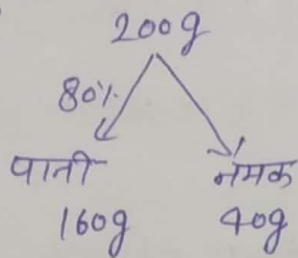 200g
80%
पानी नमक
160g 40g